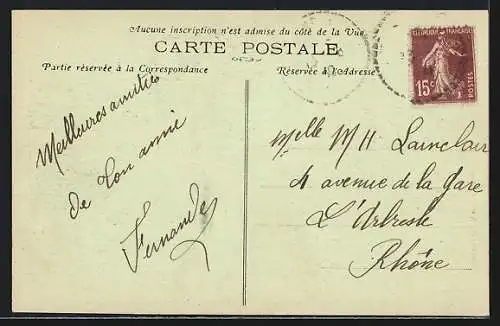 Aucune inscription n'est admise du côté de la Vue
CARTE POSTALE
Partie réservée à la Correspondance
Réservée à l'Adresse
REPUBLIQUE FRANÇAISE
15c
POSTES
Meilleures amitiés
de ton amie
Fernande
Mlle M H Lainclair
4 avenue de la Gare
L'Arbresle
Rhône